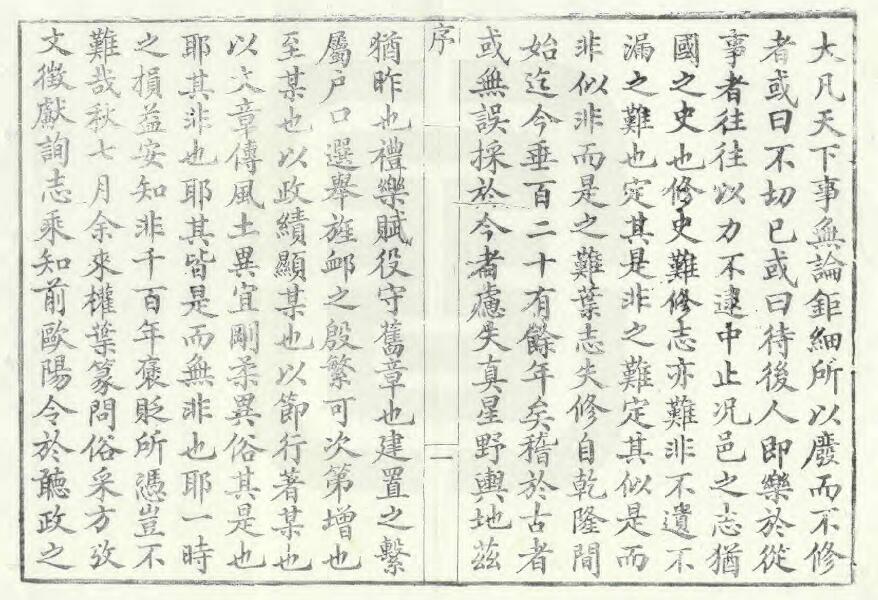 大凡天下事無論鉅細所以廢而不修
者或曰不切已或曰待後人即樂於從
事者往往以力不逮中止况邑之志猶
國之史也修史難修志亦難非不遺不
漏之難也定其是非之難定其似是而
非似非而是之難葉志失修自乾隆間
始迄今垂百二十有餘年矣稽於古者
或無誤採於今者慮失真星野輿地茲
序
一
猶昨也禮樂賦役守舊章也建置之繫
屬戶口選舉旌卹之殷繁可次第增也
至某也以政績顯某也以節行著某也
以文章傳風土異宜剛柔異俗其是也
耶其非也耶其皆是而無非也耶一時
之損益安知非千百年褒貶所憑豈不
難哉秋七月余來權葉篆問俗采方攷
文徵獻詢志乘知前歐陽令於聽政之